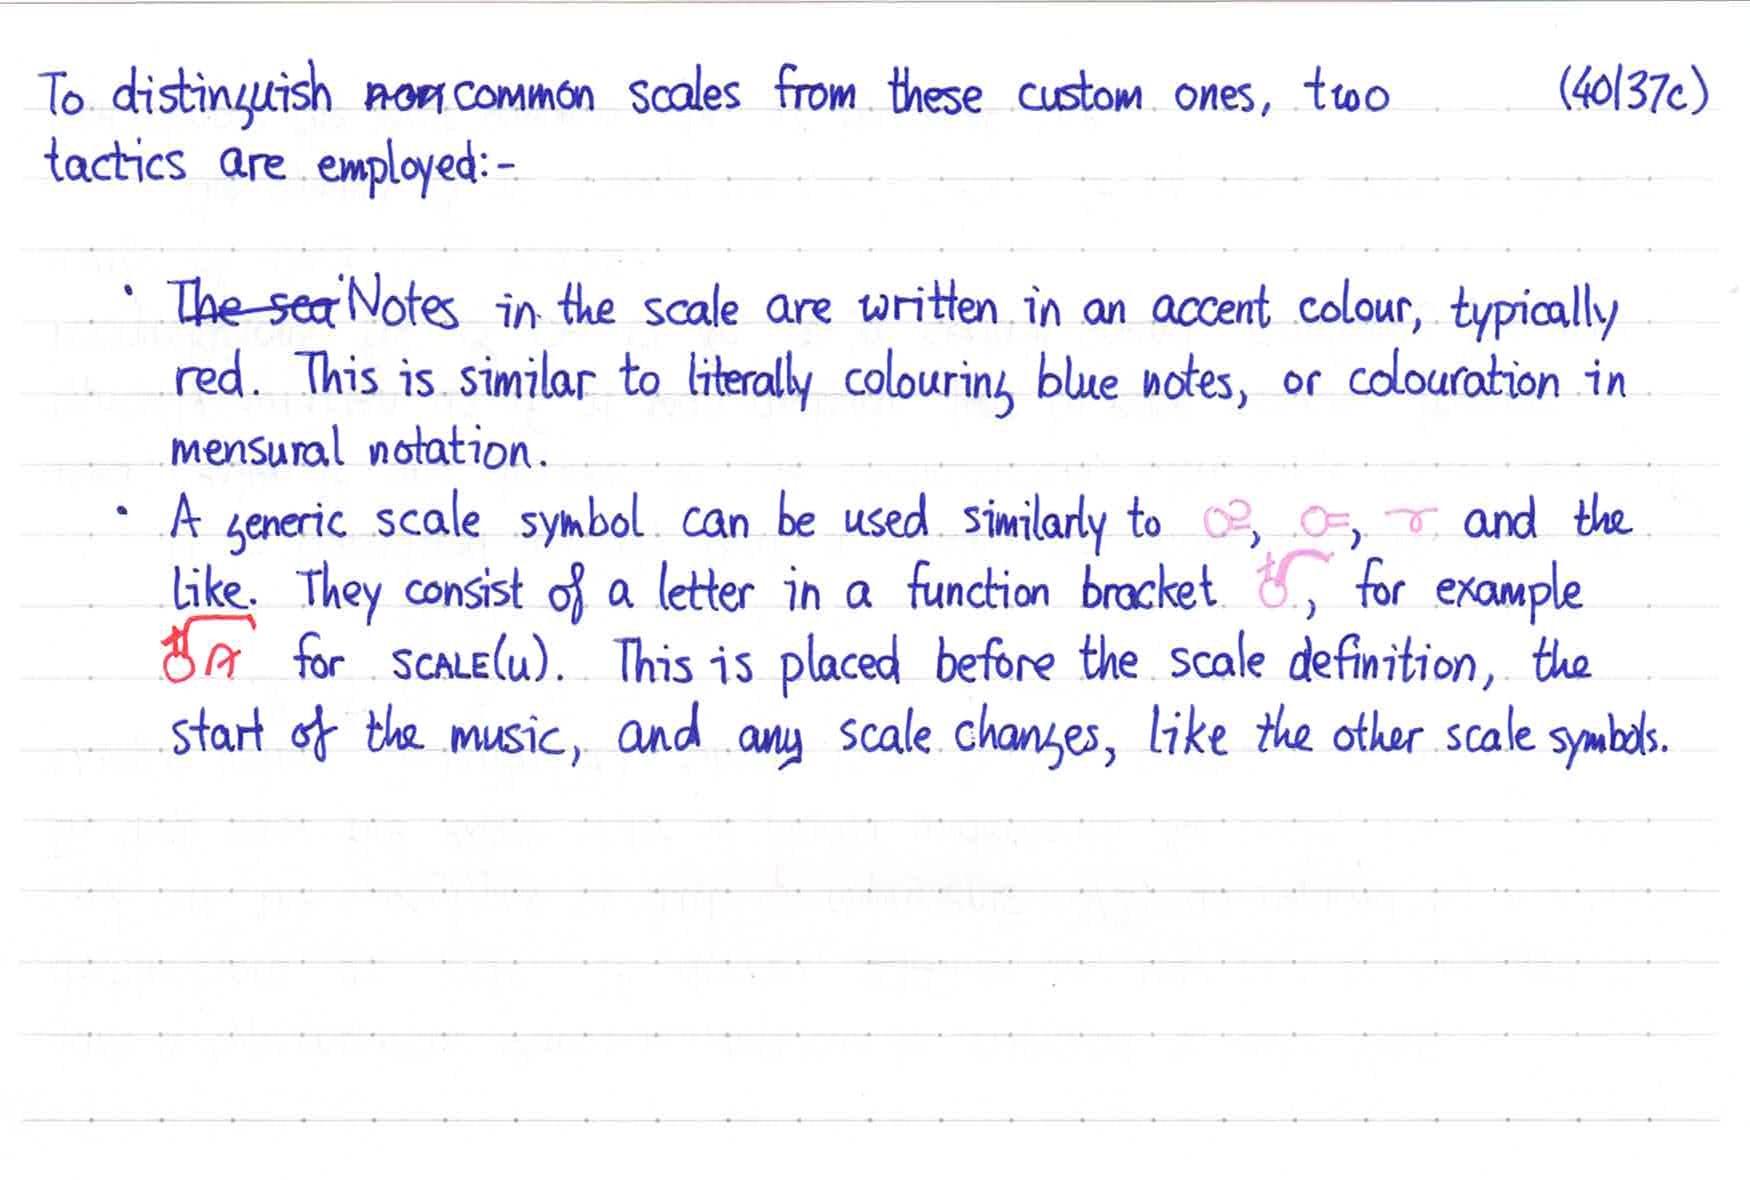 To distinguish non common scales from these custom ones, two (40|37c)
tactics are employed:-
· The sca Notes in the scale are written in an accent colour, typically
red. This is similar to literally colouring blue notes, or colouration in
mensural notation.
· A generic scale symbol can be used similarly to , , and the
like. They consist of a letter in a function bracket , for example
for SCALE(u). This is placed before the scale definition, the
start of the music, and any scale changes, like the other scale symbols.